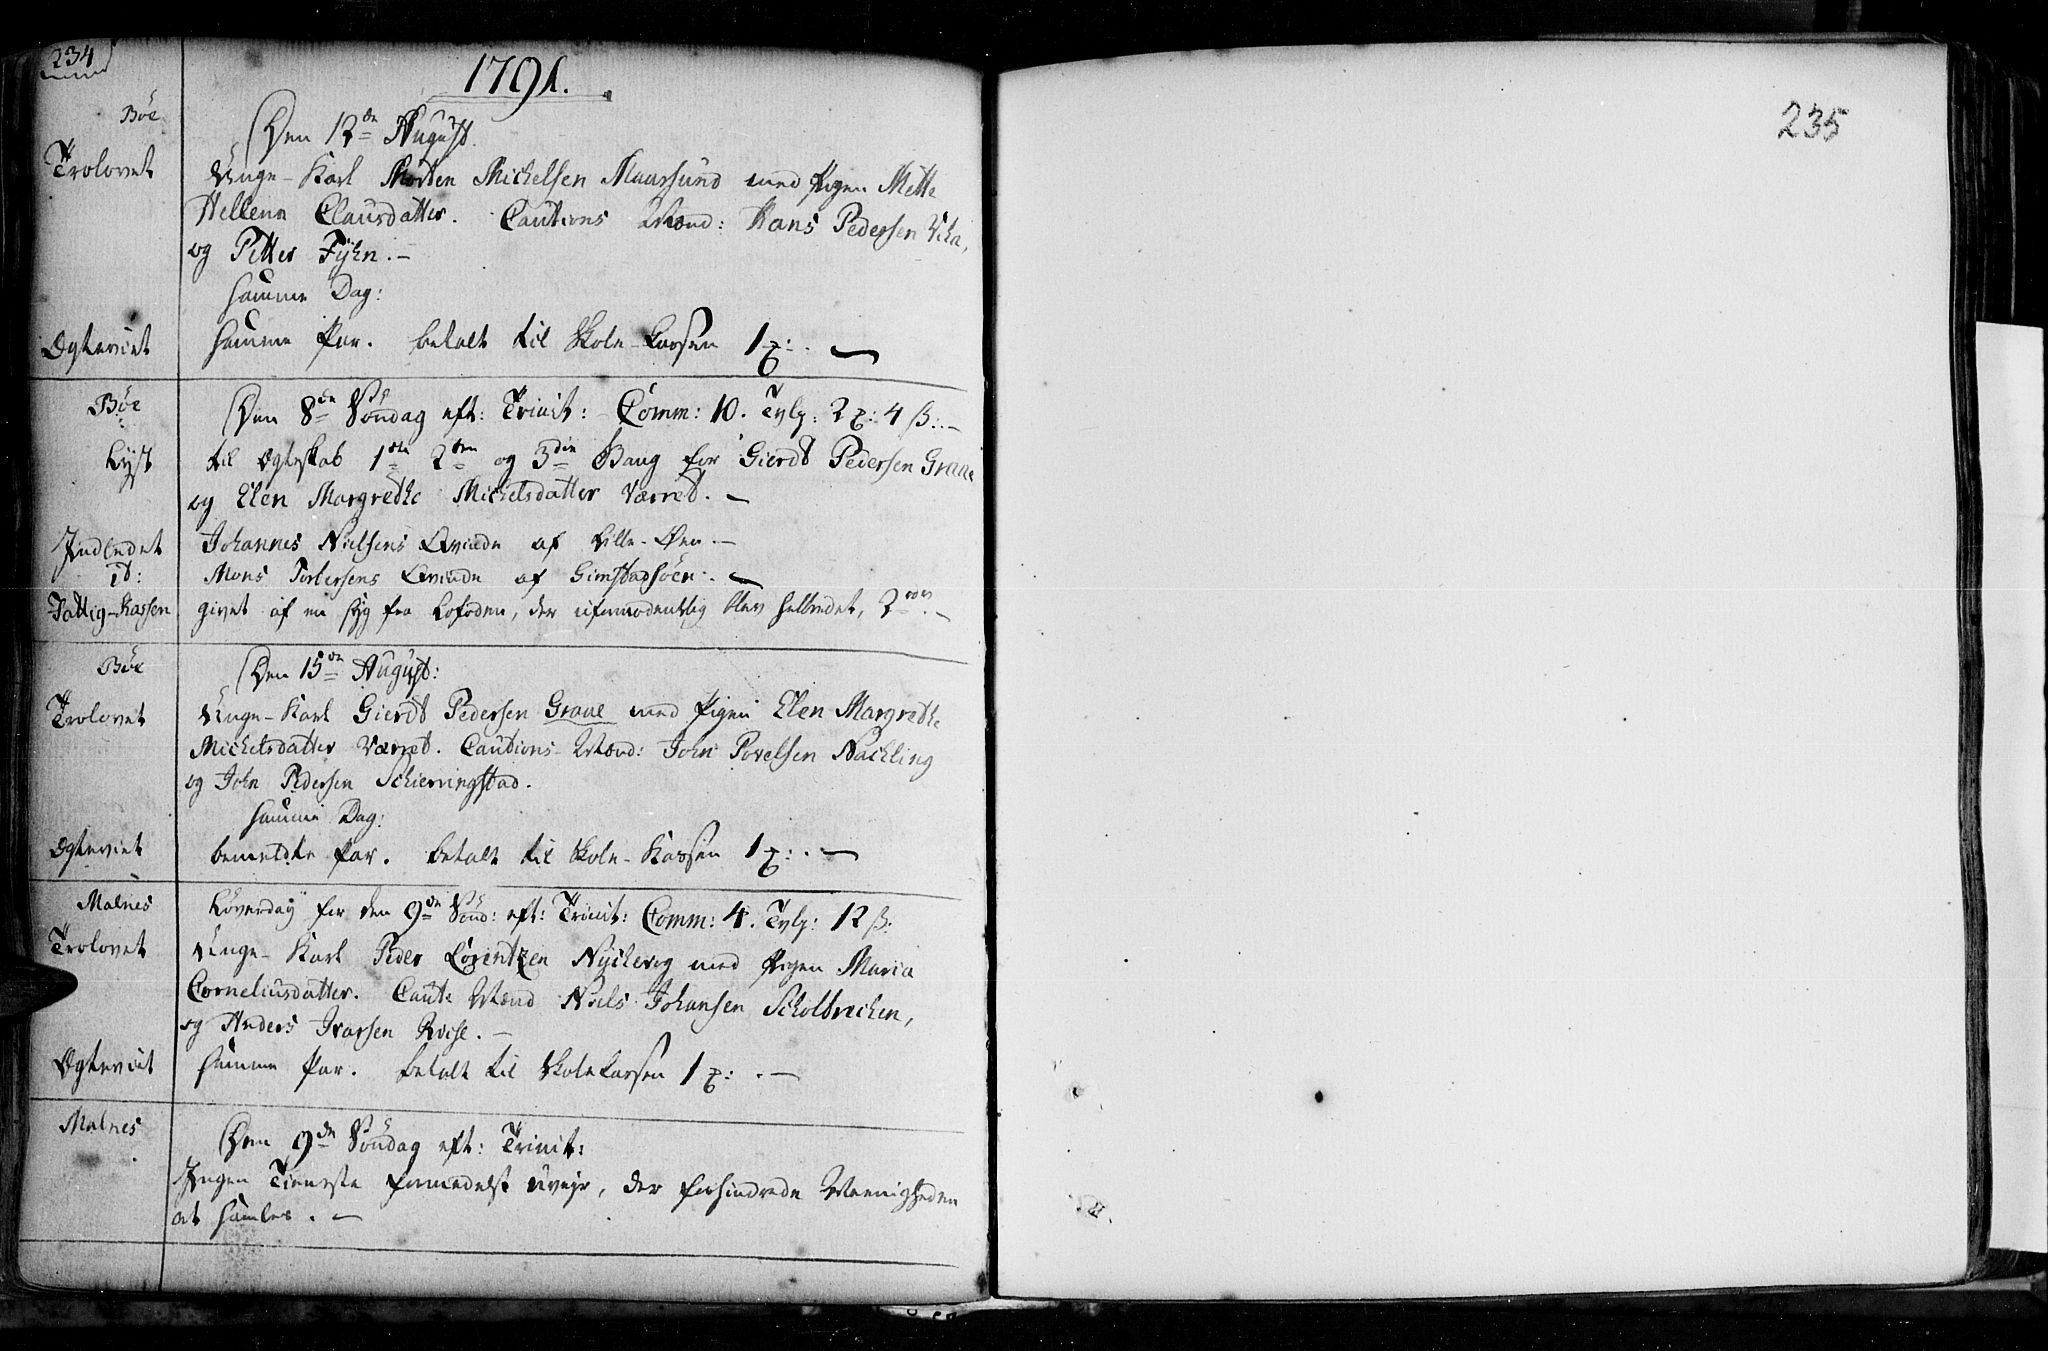 234
1791.
Bøe
Den 12te August.
Trolovet
Unge-Karl Morten Michelsen Maarsund med Pigen Mette
Hellena Clausdatter. Cautions Mænd: Hans Pedersen Vika,
og Petter Fyhn.-
Samme Dag:
Ægteviet
Samme Par. betalt til Skole-Cassen 1
Bøe
Den 8de Søndag eft: Trinit: Comm: 10. Tvlg: 2 4 ß.-
Lyst
til Ægteskab 1ste 2den og 3die Gang for Gierdt Pedersen Graae
og Elen Margrethe Michelsdatter Værret.-
Indledet
Johannes Nielsens Qvinde af Lille-Øen.-
it:
Mons Torbersens Qvinde af Gimstadsøen.-
Fattig-Kassen
givet af en syg fra Lofoden, der uformodentlig blev helbredet, 2
Bøe
Den 15de August:
Trolovet
Unge-Karl Gierdt Pedersen Graae med Pigen Elen Margrethe
Michelsdatter Værret. Cautions-Mænd: John Povelsen Nachling
og John Pedersen Schierringstad.
Samme Dag:
Ægteviet
bemeldte Par. betalt til Skole-Kassen 1
Malnes
Løverdag for den 9de Sønd: eft: Trinit: Comm: 4. Tvlg: 12 ß.
Trolovet
Unge-Karl Peder Lorentzen Nychevog med Pigen Maria
Corneliusdatter. Caut: Mænd Niels Johansen Scholbrechen,
og Anders Ivarsen Roese.-
Ægteviet
Samme Par. betalt til Skolekassen 1
Malnes
Den 9de Søndag eft: Trinit:
Ingen Tieneste formedelst uveyr, der forhindrede Meenigheden
at samles.-
235